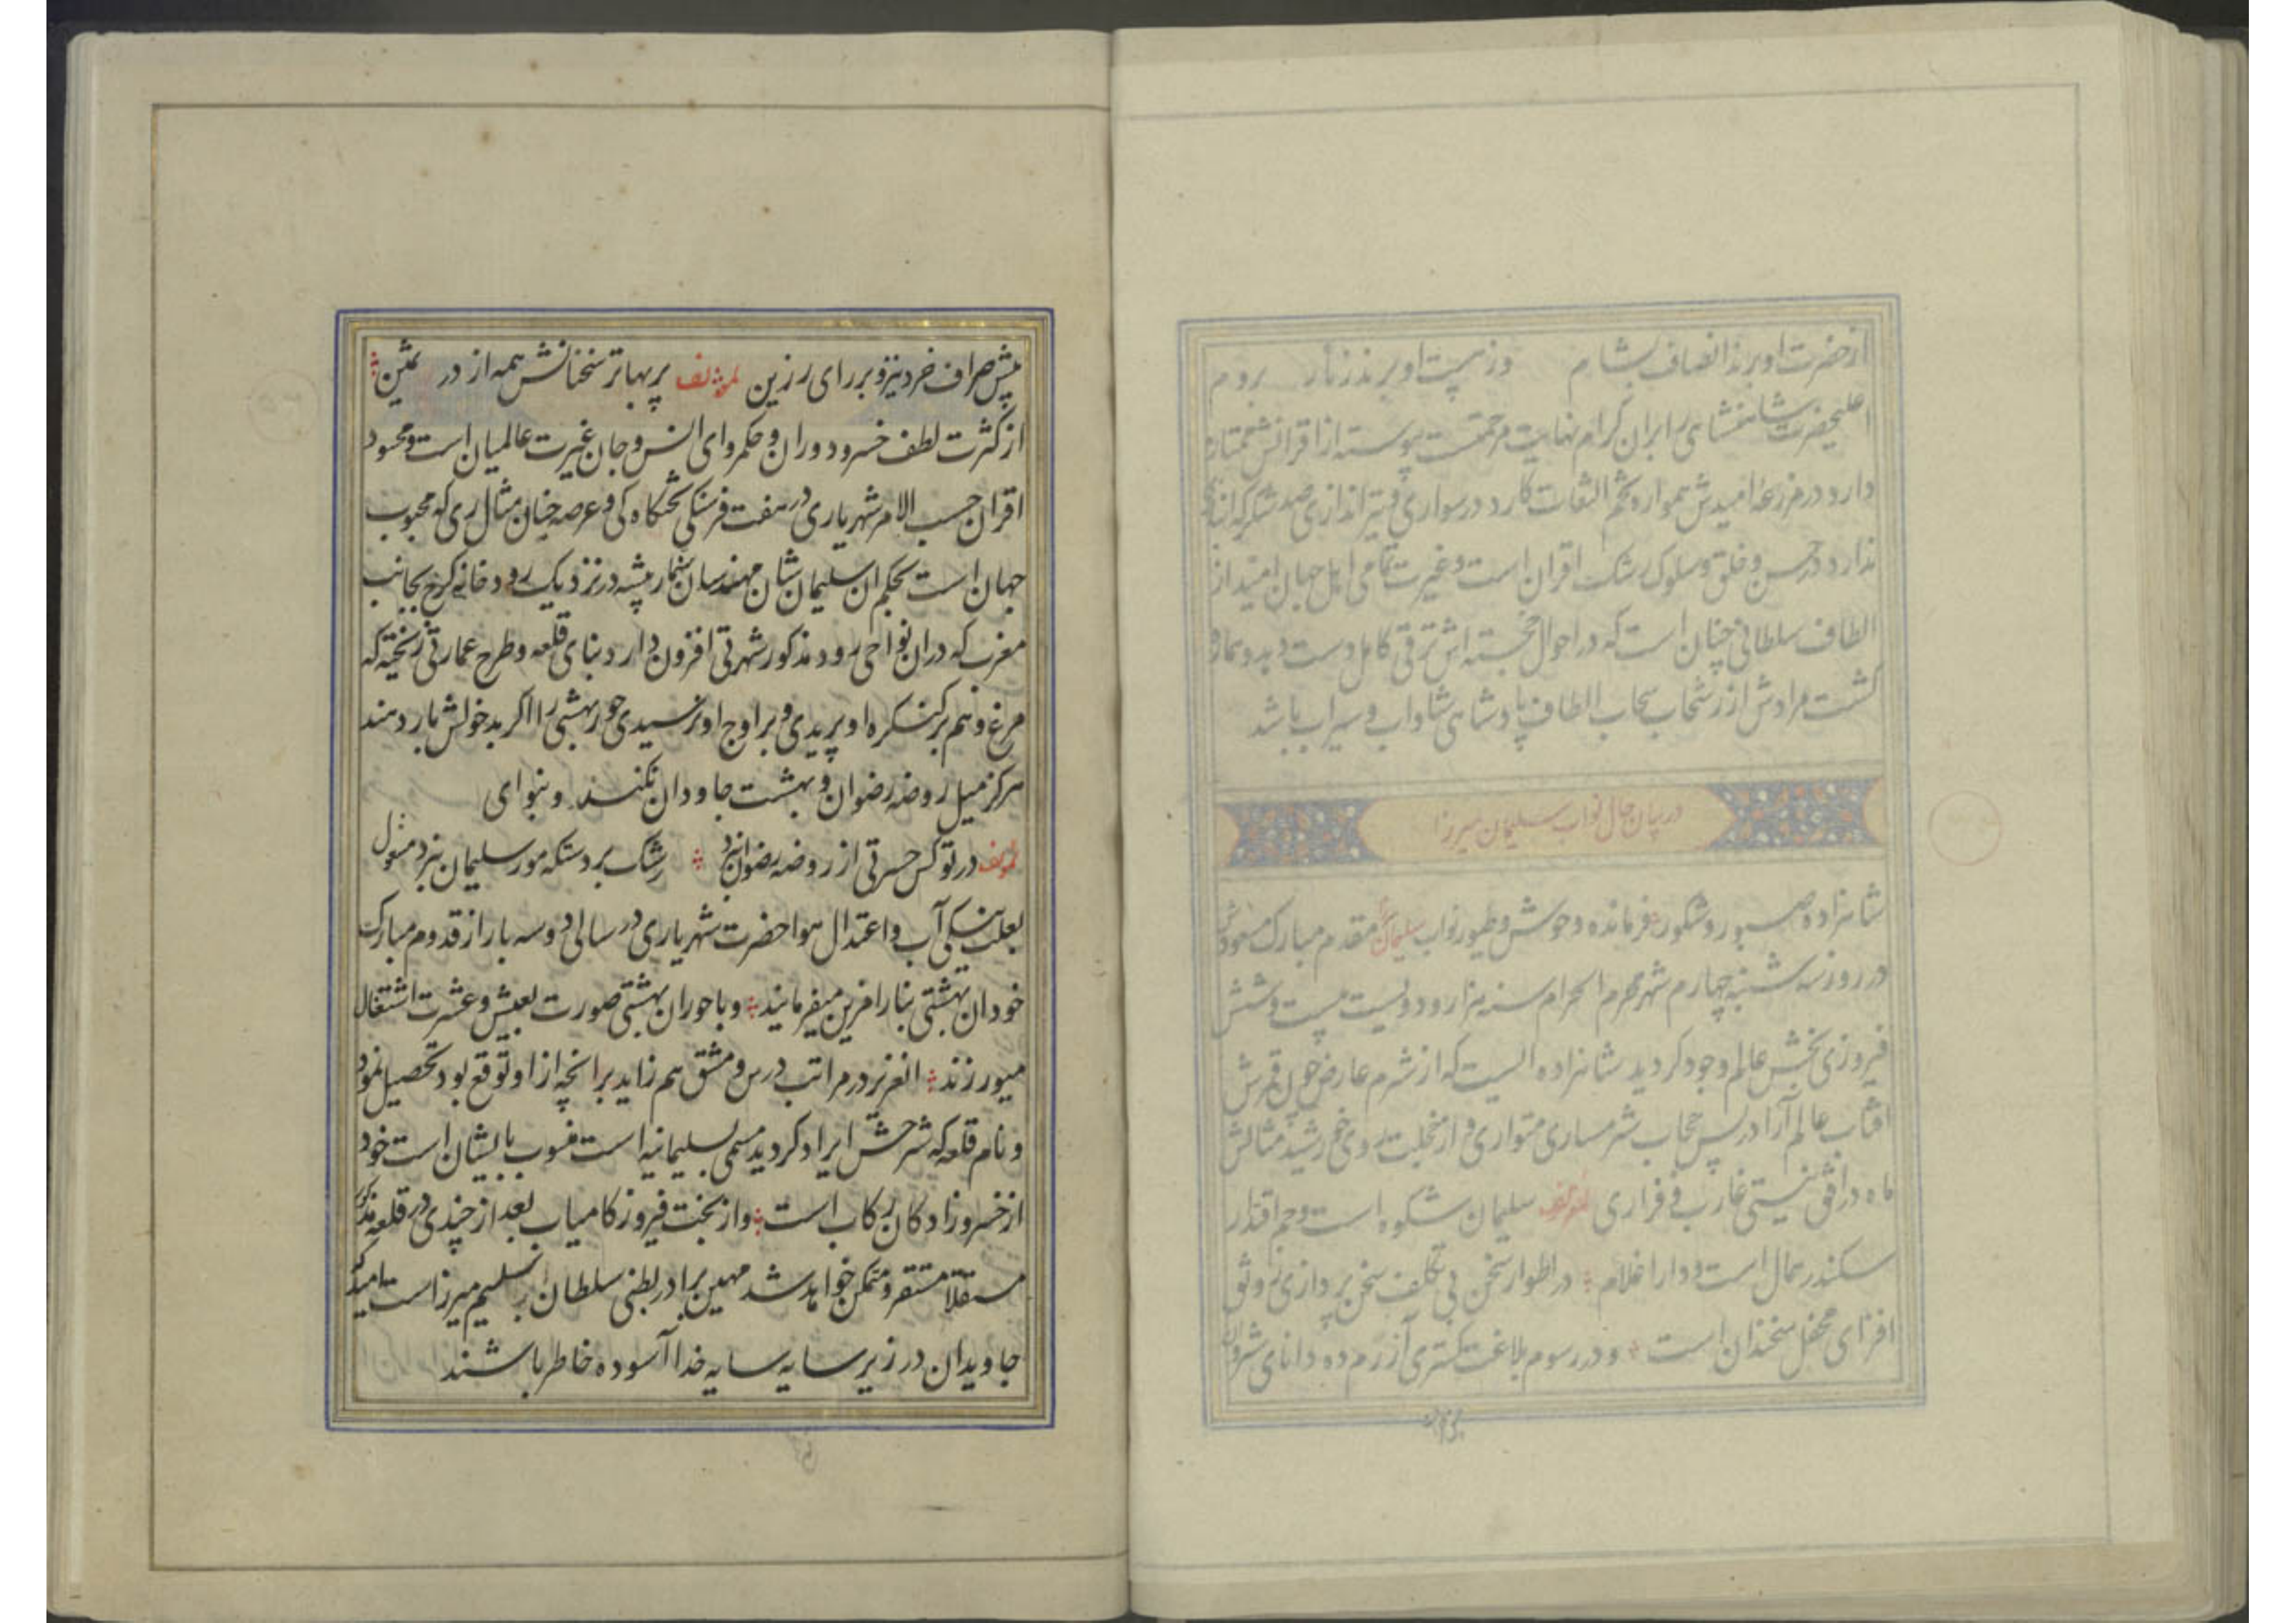 از حضرت او برند انصاف بشام وز هیبت او برند زنار بروم
اعلیحضرت شاهنشاهی را بر ان گرام نهایت مرحمت پیوسته از اقرانش ممتاز
دارد و در مزرعه امیدش همواره تخم التفات کارد در سواری و تیر اندازی
ندارد و در حسن و خلق و سلوک رشک اقران است و غیرت تمامی اهل جهان امید از
الطاف سلطانی چنان است که در احوال خجسته اش ترقی کامل دست دهد و
کشت مرادش از رشحات سحاب الطاف پادشاهی شاداب و سیراب باشد
در بیان حال نواب سلیمان میرزا
شاهزاده صبور و شکور فرمانده وحوش و طیور نواب سلیمان مقدم مبارک مسعودش
در روز سه شنبه چهارم شهر محرم الحرام سنه هزار و دویست بیست و شش
فیروزی بخش عالم وجود کردید شاهزاده ایست که از شرم عارض چون قمرش
افتاب عالم آرا در پس حجاب شرمساری متواری و از خجلت روی خورشید مثالش
ماه در افق نیستی غارب و فراری لمؤلفه سلیمان شکوه است و جم اقتدار
سکندر همال است و دارا غلام در اطوار سخن بی تکلف سخن پردازی وثوق
افزای محفل سخندان است و در رسوم بلاغت گستری آزرم ده دانای شروان
پیش
پیش صراف خرد نیز و بر رای رزین لمؤلفه پر بهاتر سخنانش همه از در ثمین
از کثرت لطف خسرو دوران و حکمروای انس و جان غیرت عالمیان است و محسود
اقران حسب الامر شهریاری در هفت فرسنکی تختکاه کی و عرصه جنان مثال ری که محبوب
جهان است بحکم ان سلیمان شان مهندسان سنمار پیشه در نزدیک رودخانه کرج بجانب
مغرب که در ان نواحی رود مذکور شهرتی افزون دارد بنای قلعه و طرح عمارتی ریخته که
مرغ وهم بر کنکره او نپریدی و بر اوج او نرسیدی حور بهشتی را اگر بدخولش بار دهند
هرکز میل روضه رضوان و بهشت جاودان نکنند و بنوای
لمؤلفه در تو کس حسرتی از روضه رضوان نبرد رشک بر دستکه مور سلیمان نبرد
بعلت خنکی آب و اعتدال هوا حضرت شهریاری در سالی دو سه بار از قدوم مبارک
خود ان بهشتی بنا را فرین میفرمایند و با حوران بهشتی صورت بعیش و عشرت اشتغال
میورزند انعزیز در مراتب درس و مشق هم زاید بر انچه از او توقع بود تحصیل نمود
و نام قلعه که شرحش ایراد کردید مسمی بسلیمانیه است منسوب بایشان است خود
از خسروزادکان رکاب است و از بخت فیروز کامیاب بعد از چندی در قلعه مذکور
مستقلا مستقر و متمکن خواهد شد مهین برادر بطنی سلطان سلیم میرزاست امید که
جاویدان در زیر سایه سایه خدا آسوده خاطر باشند